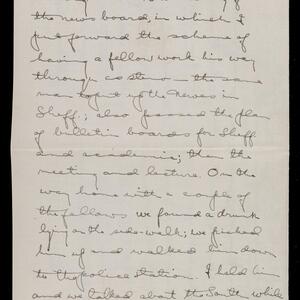 the news board, in which I
put forward the scheme of
having a fellow work his way
through as steno – the same
man to get up the News in
Sheff.; also passed the plan
of bulletin boards for Sheff
and academic; then the
meeting and lecture. On the
way home with a couple of
the fellows we found a drunk
lying on the side-walk; we picked
him up and walked him down
to the police station. I held him
and we talked about the South while